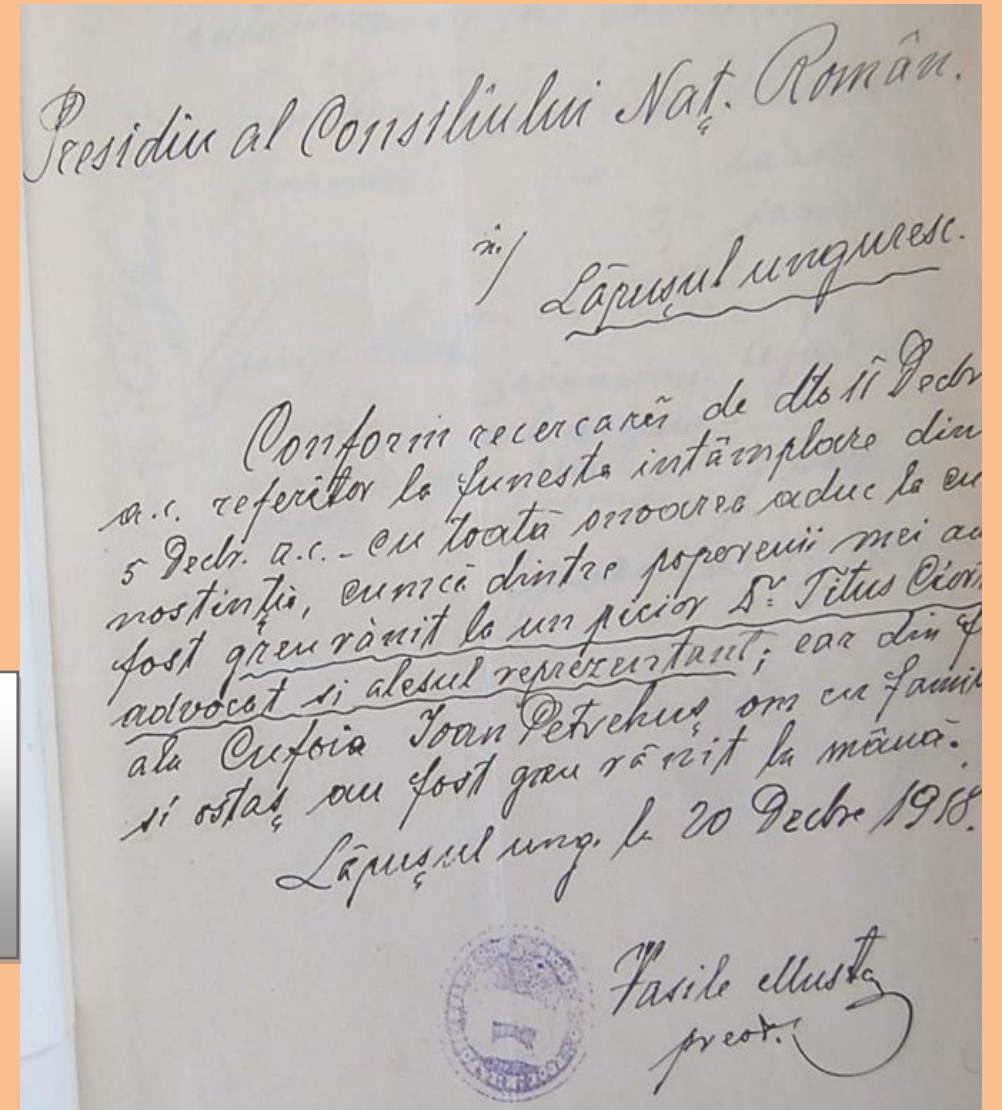 Presidiu al Consiliului Naț. Român.
în/
Lăpușul unguresc.
Conform recercării de dto 11 Decbr
a.c. referitor la funesta întâmplare din
5 Decbr. a.c. - cu toată onoarea aduc la cu
nostinția, cumcă dintre poporenii mei au
fost greu rănit la un picior Dr. Titus
advocat si alesul reprezentant; ear din
ala Cufoia Ioan Petrehuș om cu famil
si ostaș au fost greu rănit la mână.
Lăpușul ung. la 20 Decbre 1918.
Vasile Musta
preot.